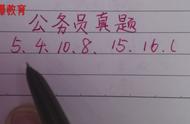 教育
公务员真题
5、4、10、8、15、16、(